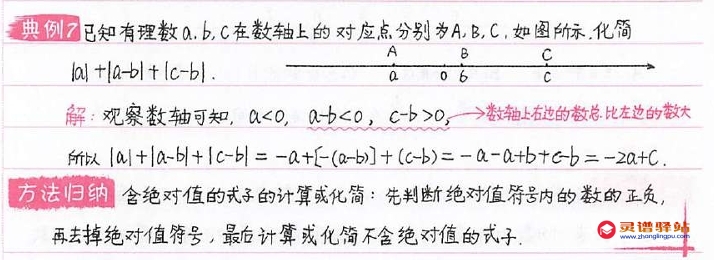 典例7 已知有理数a,b,c在数轴上的对应点分别为A,B,C,如图所示.化简
|a|+|a-b|+|c-b|.
A B C
a 0 b c
解:观察数轴可知, a<0, a-b<0, c-b>0, →数轴上右边的数总比左边的数大
所以 |a|+|a-b|+|c-b|=-a+[-(a-b)]+(c-b)=-a-a+b+c-b=-2a+c.
方法归纳 含绝对值的式子的计算或化简:先判断绝对值符号内的数的正负,
再去掉绝对值符号,最后计算或化简不含绝对值的式子.
灵谱驿站
www.zhanglingpu.com